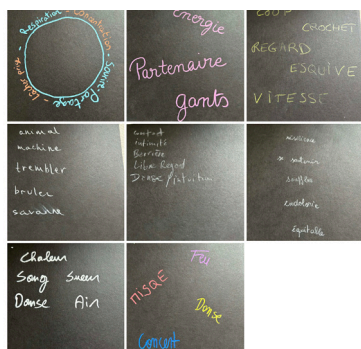 Respiration - Concentration - Sourire - Partage - Lâcher prise -
énergie
Partenaire
gants
COUP
CROCHET
REGARD
ESQUIVE
VITESSE
animal
machine
trembler
bruler
savane
contact
intimité
Barrière
Libre Regard
Danse / intuition
résilience
souffles
endolorie
équitable
Chaleur
Song Sueur
Danse Air
Feu
RISQE
Danse
Concert